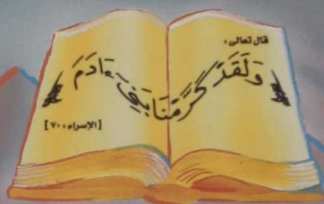 قال تعالى:
وَلَقَدْ كَرَّمْنَا بَنِي ءَادَمَ
[الإسراء: ٧٠]